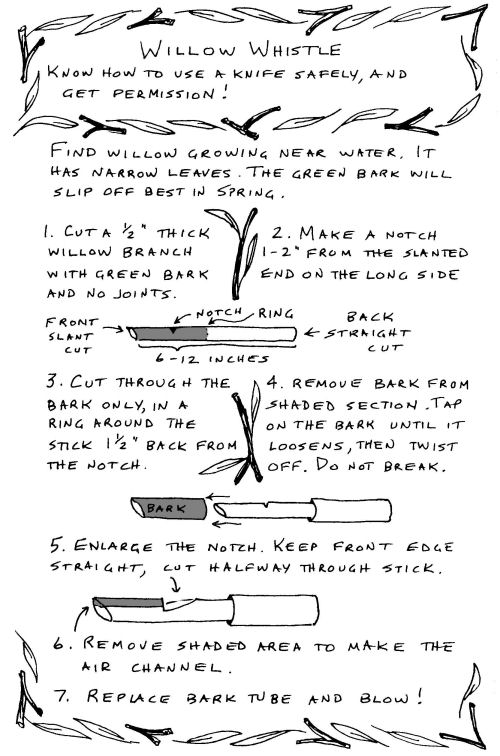 WILLOW WHISTLE
KNOW HOW TO USE A KNIFE SAFELY, AND
GET PERMISSION!
FIND WILLOW GROWING NEAR WATER. IT
HAS NARROW LEAVES. THE GREEN BARK WILL
SLIP OFF BEST IN SPRING.
1. CUT A 1/2" THICK
WILLOW BRANCH
WITH GREEN BARK
AND NO JOINTS.
2. MAKE A NOTCH
1-2" FROM THE SLANTED
END ON THE LONG SIDE
FRONT
SLANT
CUT
NOTCH
RING
BACK
STRAIGHT
CUT
6-12 INCHES
3. CUT THROUGH THE
BARK ONLY, IN A
RING AROUND THE
STICK 1 1/2" BACK FROM
THE NOTCH.
4. REMOVE BARK FROM
SHADED SECTION. TAP
ON THE BARK UNTIL IT
LOOSENS, THEN TWIST
OFF. DO NOT BREAK.
BARK
5. ENLARGE THE NOTCH. KEEP FRONT EDGE
STRAIGHT, CUT HALFWAY THROUGH STICK.
6. REMOVE SHADED AREA TO MAKE THE
AIR CHANNEL.
7. REPLACE BARK TUBE AND BLOW!